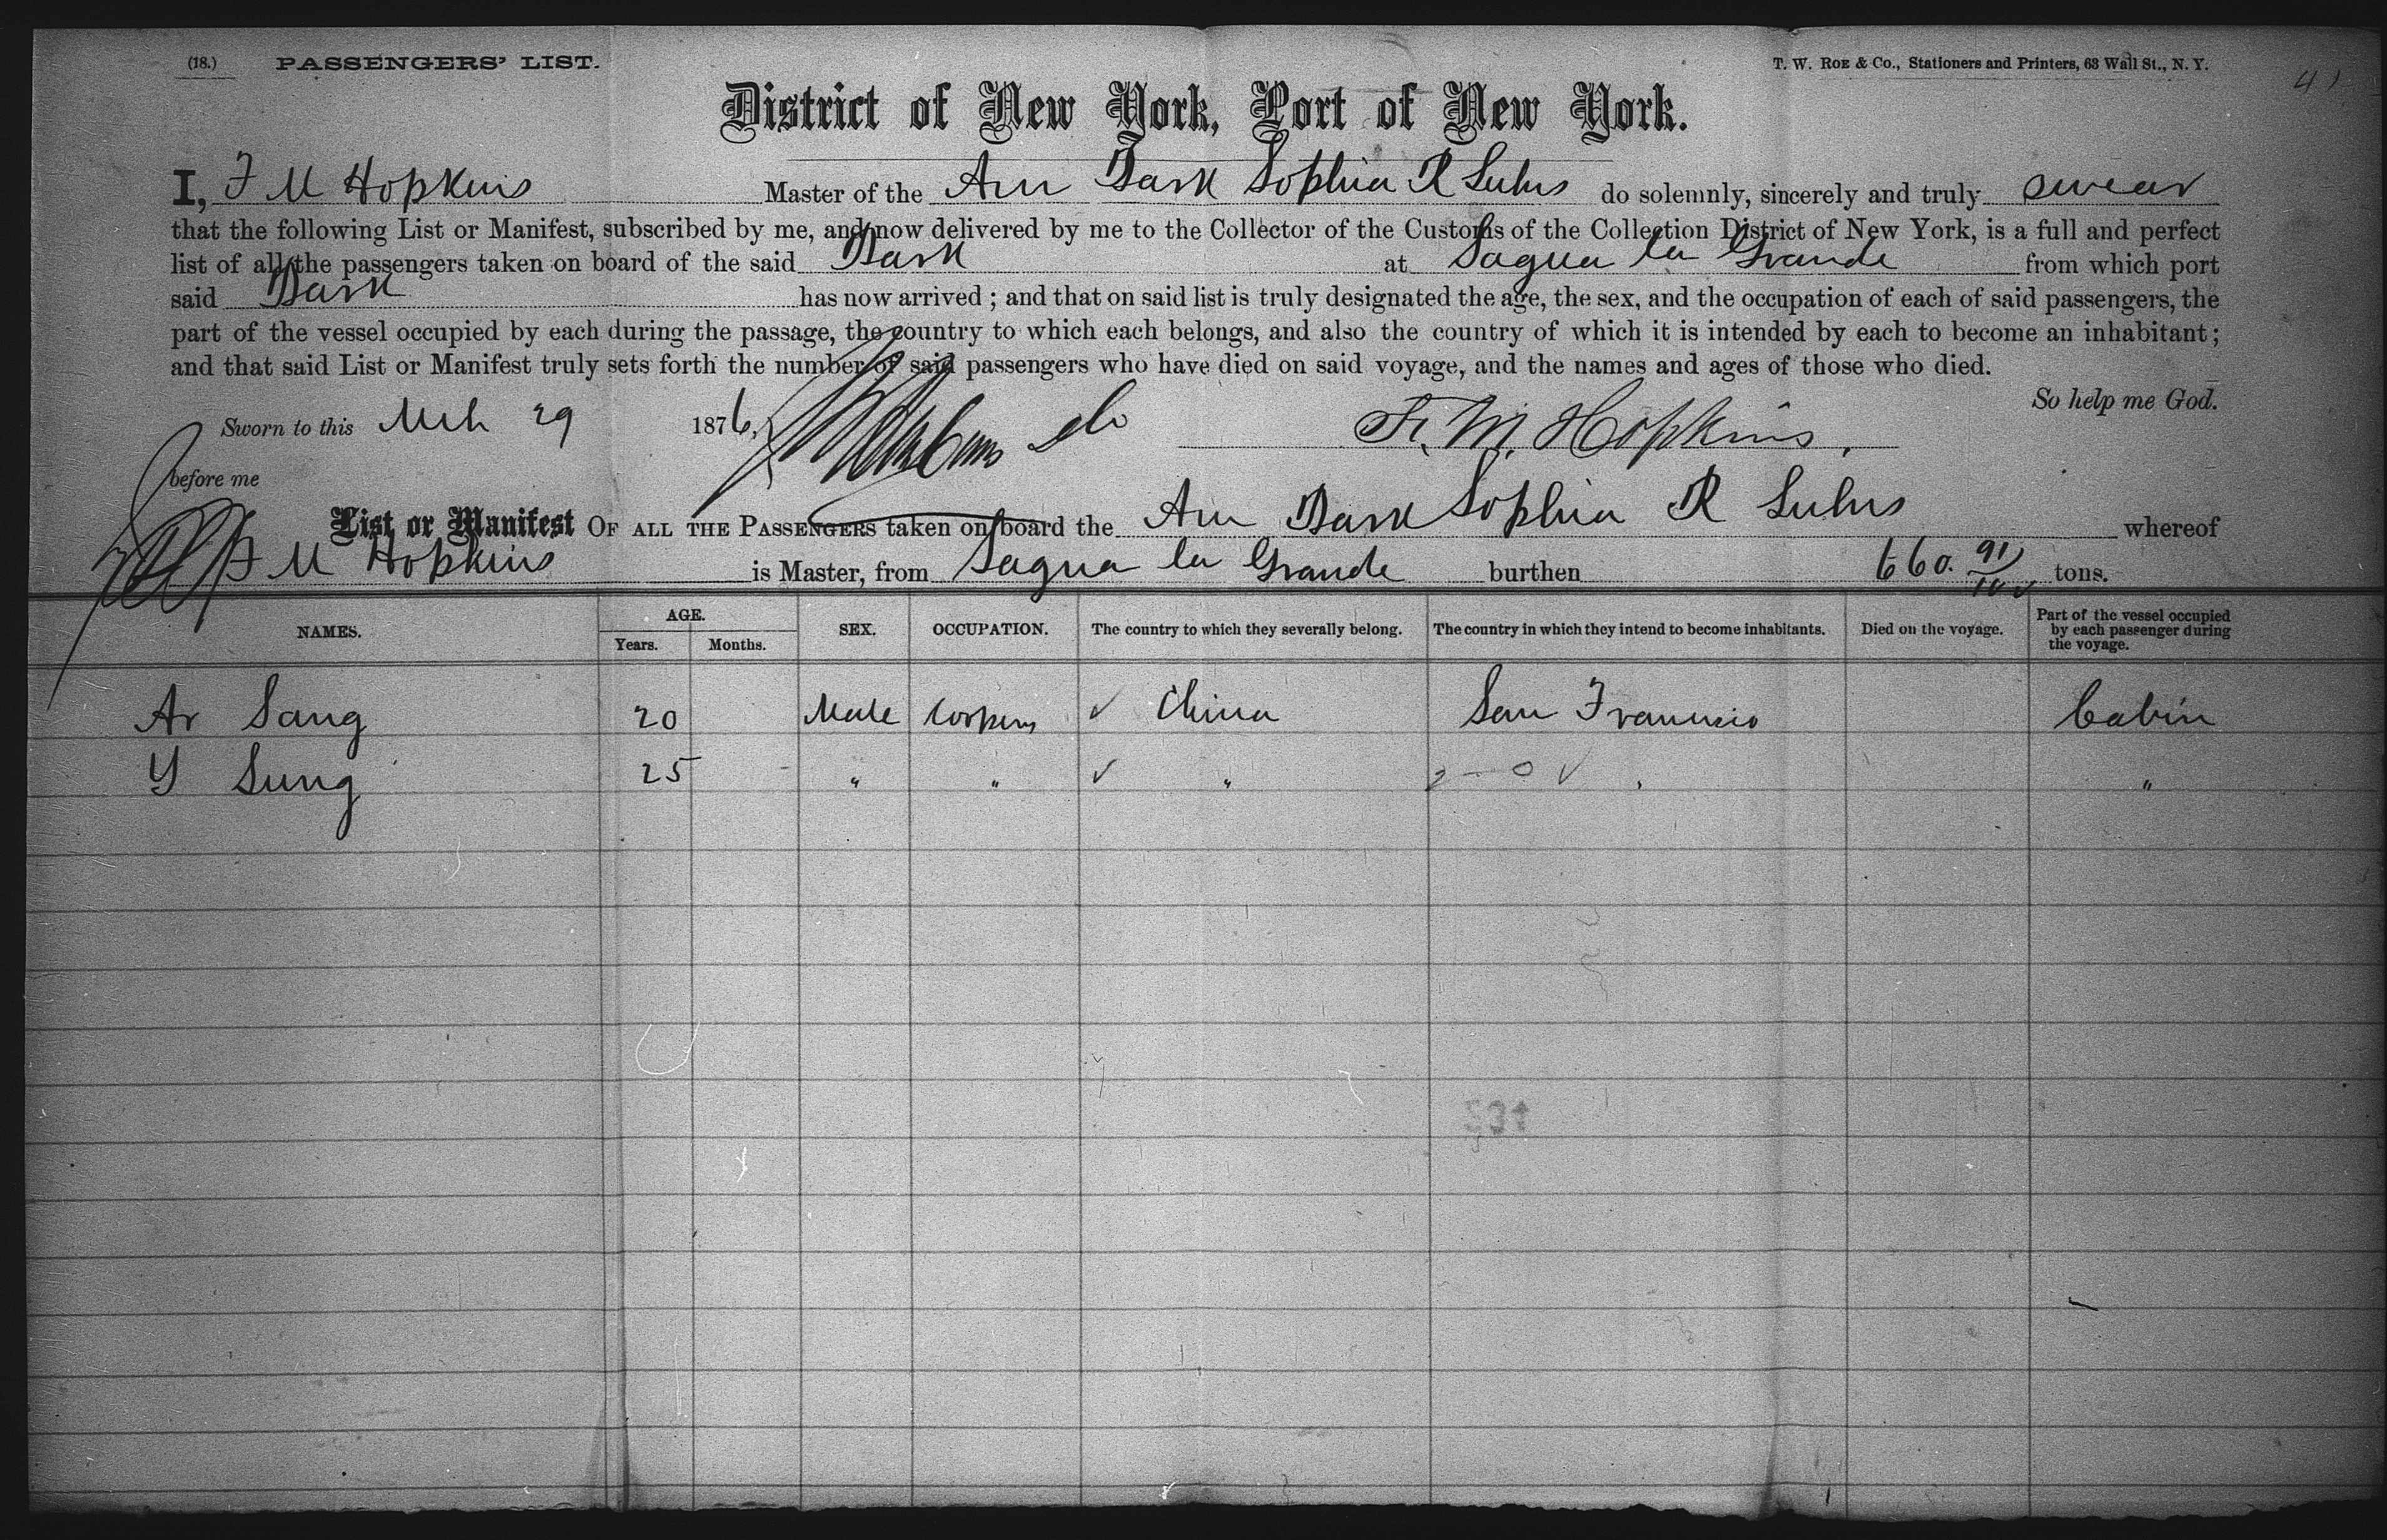 (18.) PASSENGERS' LIST. T. W. ROE & Co., Stationers and Printers, 63 Wall St., N. Y. 41
District of New York, Port of New York.
I, F M Hopkins Master of the Am Bark Sophia R Luhrs do solemnly, sincerely and truly swear
that the following List or Manifest, subscribed by me, and now delivered by me to the Collector of the Customs of the Collection District of New York, is a full and perfect
list of all the passengers taken on board of the said Bark at Sagua la Grande from which port
said Bark has now arrived; and that on said list is truly designated the age, the sex, and the occupation of each of said passengers, the
part of the vessel occupied by each during the passage, the country to which each belongs, and also the country of which it is intended by each to become an inhabitant;
and that said List or Manifest truly sets forth the number of said passengers who have died on said voyage, and the names and ages of those who died.
So help me God.
Sworn to this Mch 29 1876, F. M. Hopkins,
before me
List or Manifest OF ALL THE PASSENGERS taken on board the Am Bark Sophia R Luhrs whereof
F M Hopkins is Master, from Sagua la Grande burthen 660. 91/100 tons.
NAMES. AGE. Years. Months. SEX. OCCUPATION. The country to which they severally belong. The country in which they intend to become inhabitants. Died on the voyage. Part of the vessel occupied by each passenger during the voyage.
Ar Sang 20 Male ✓ China San Francisco Cabin
Y Sung 25 " " ✓ " "